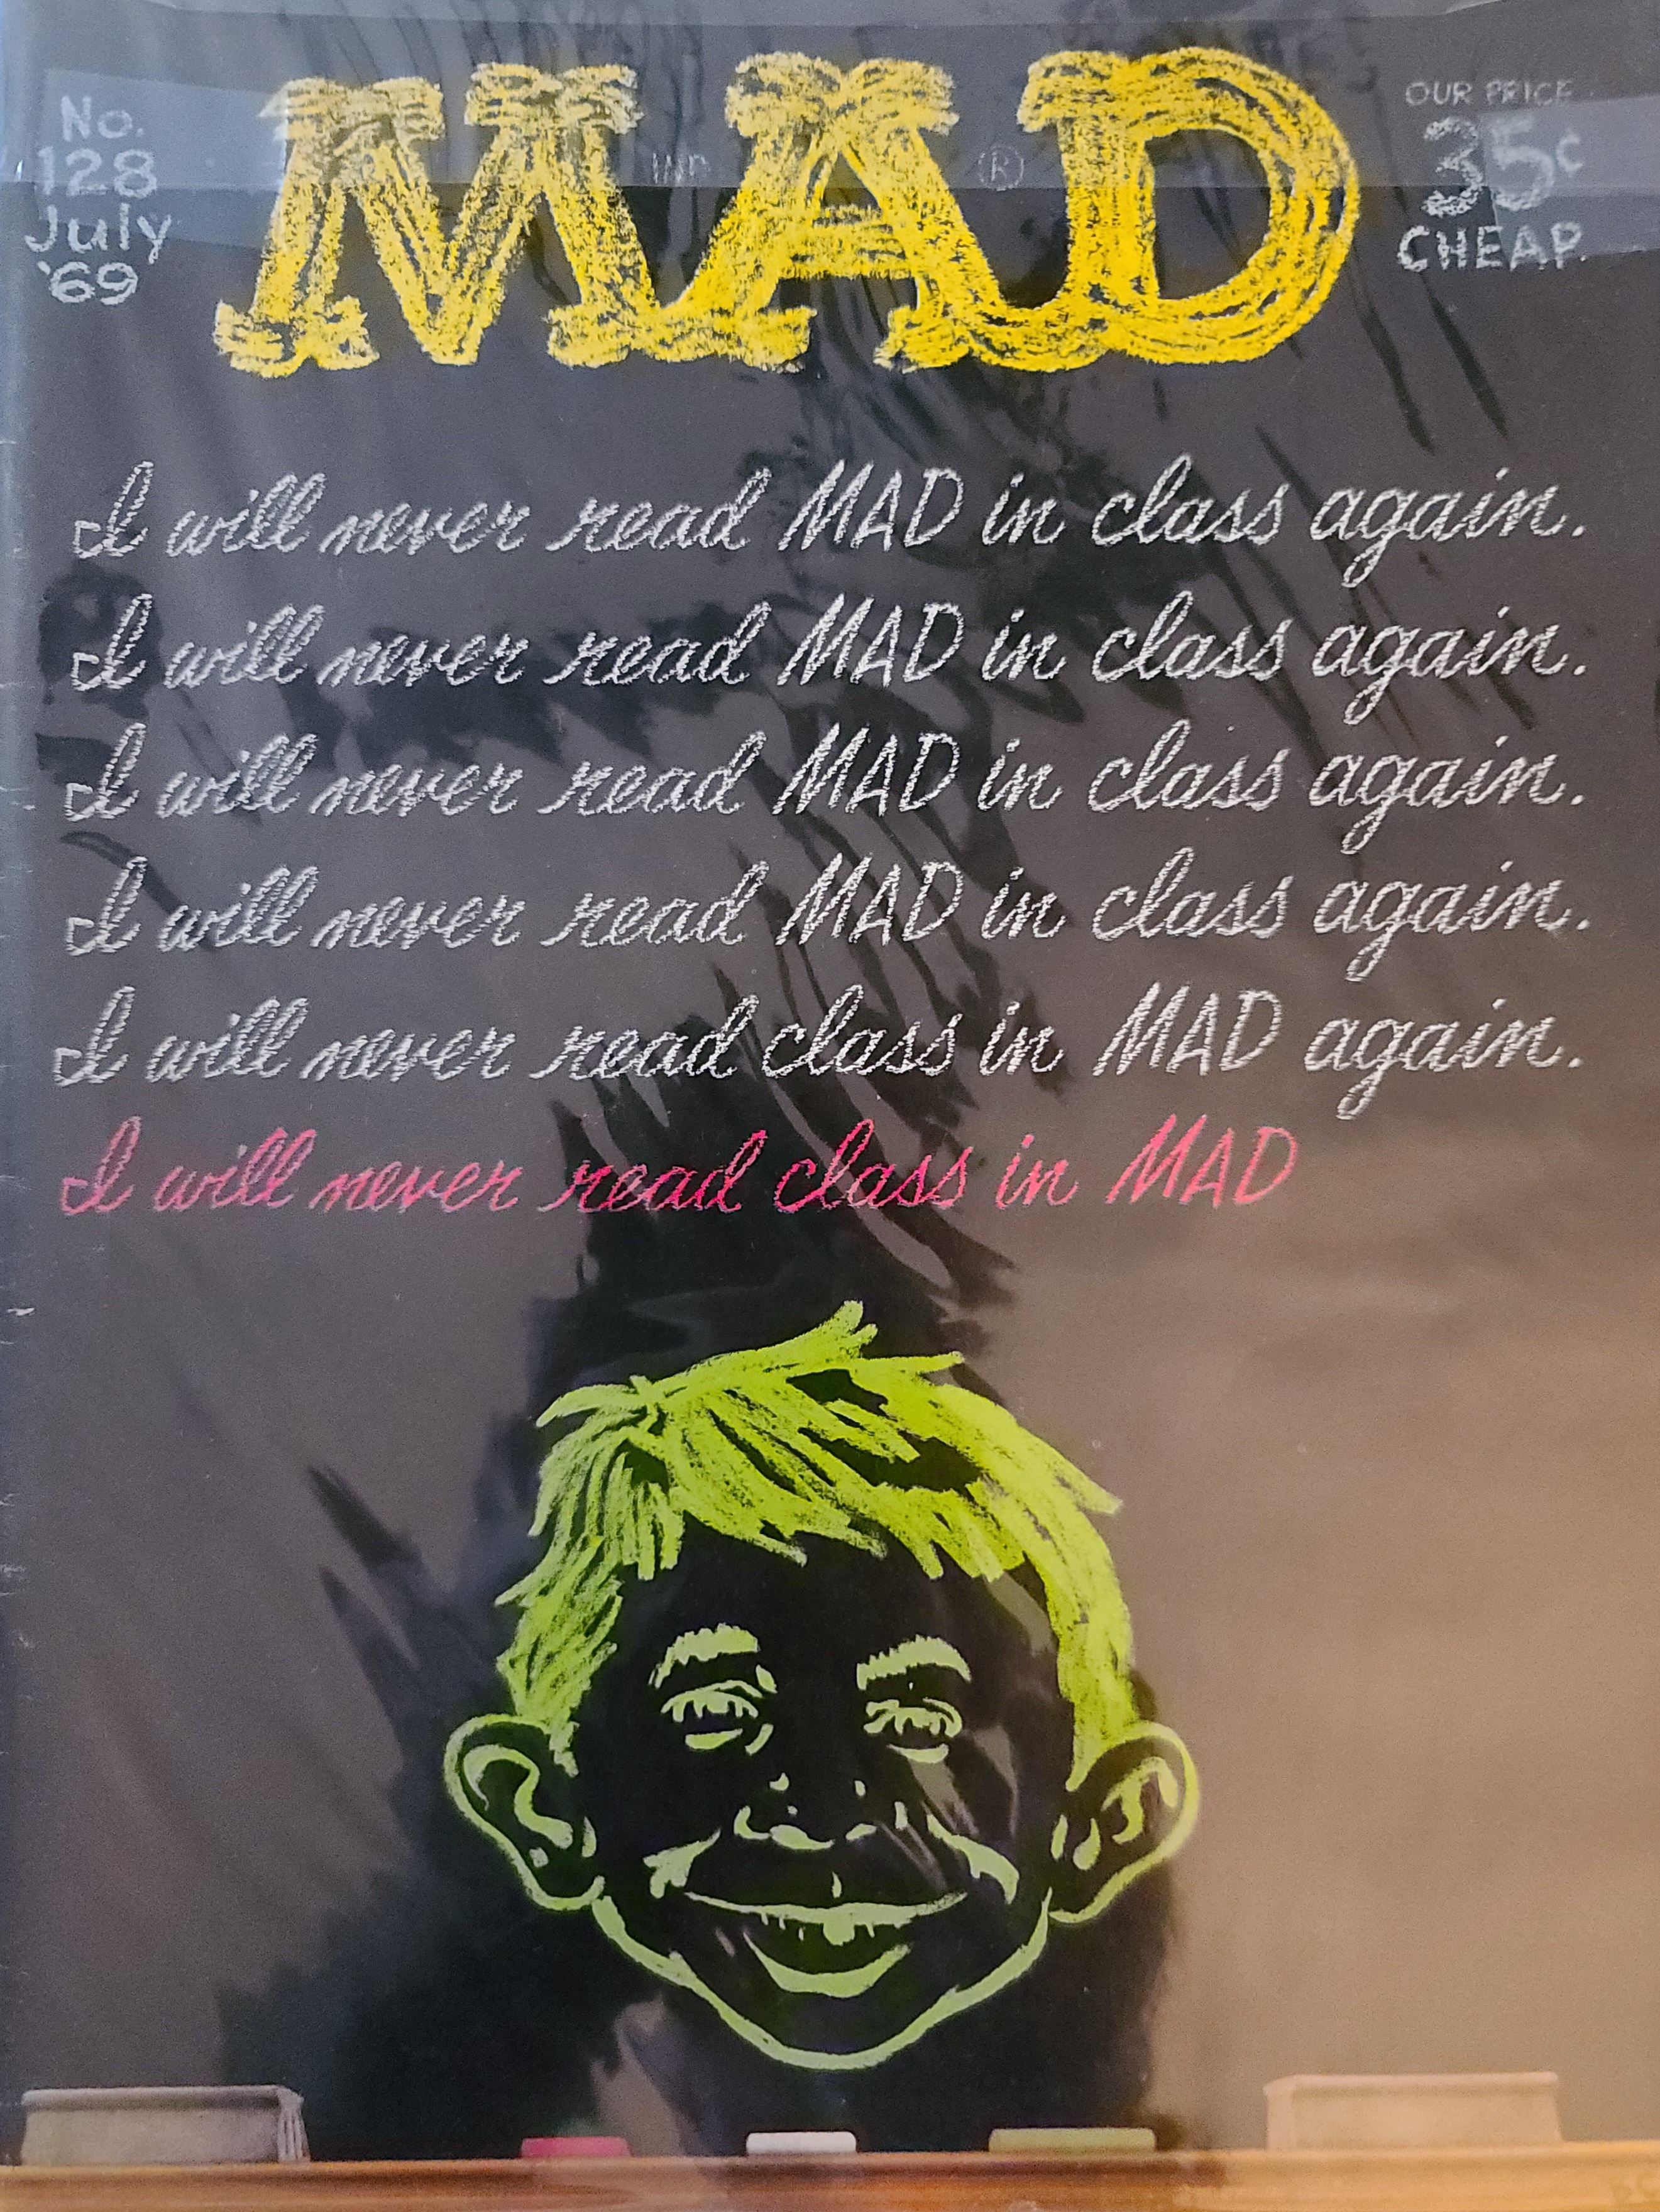 No.
128
July
'69
MAD
IND
®
OUR PRICE
35¢
CHEAP
I will never read MAD in class again.
I will never read MAD in class again.
I will never read MAD in class again.
I will never read MAD in class again.
I will never read class in MAD again.
I will never read class in MAD